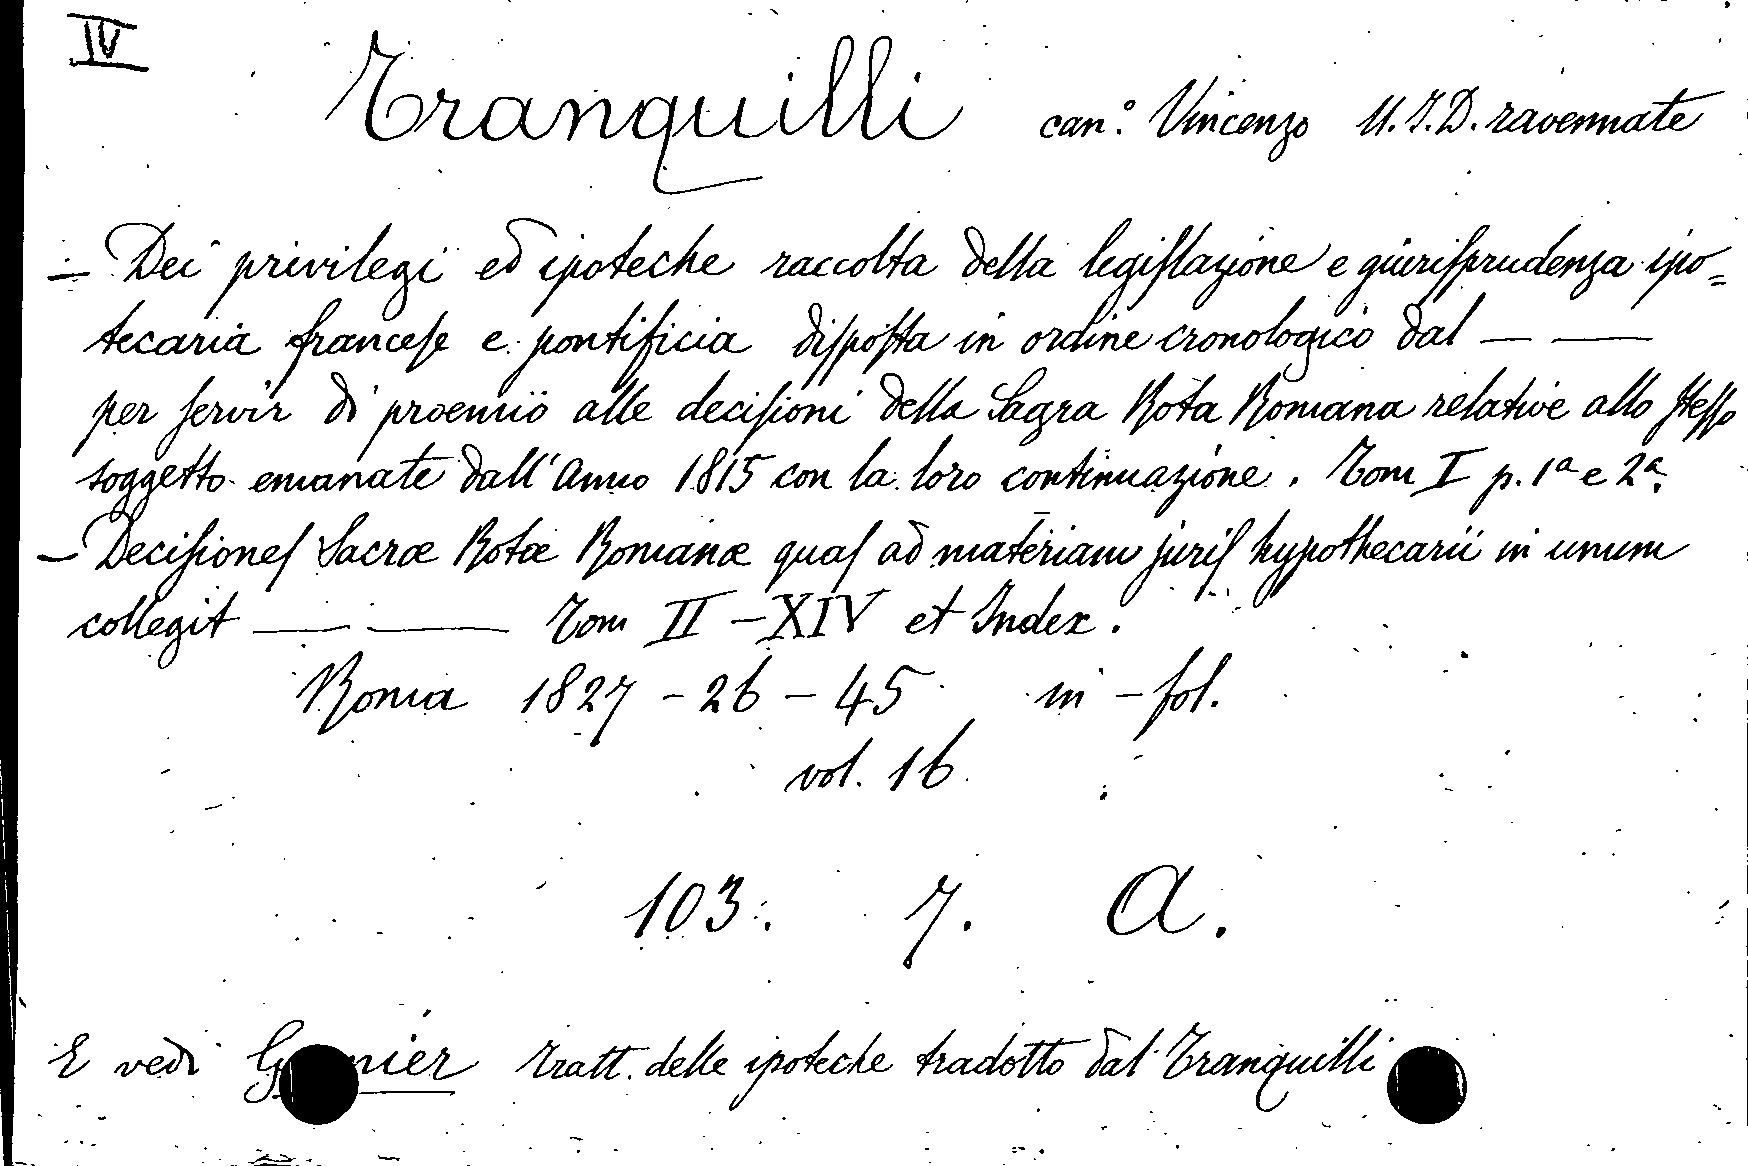 IV
Tranquilli can.° Vincenzo U.J.D. ravennate
— Dei privilegi ed ipoteche raccolta della legislazione e giurisprudenza ipo=
tecaria francese e pontificia disposta in ordine cronologico dal — —
per servir di proemio alle decisioni della Sagra Rota Romana relative allo stesso
soggetto emanate dall'Anno 1815 con la loro continuazione. Tom I p. 1ª e 2ª.
— Decisiones Sacræ Rotæ Romanæ quas ad materiam juris hypothecarii in unum
collegit — — Tom II – XIV et Index.
Roma 1827 - 26 - 45 in - fol.
vol. 16
103. 7. A.
E vedi tratt. delle ipoteche tradotto dal Tranquilli